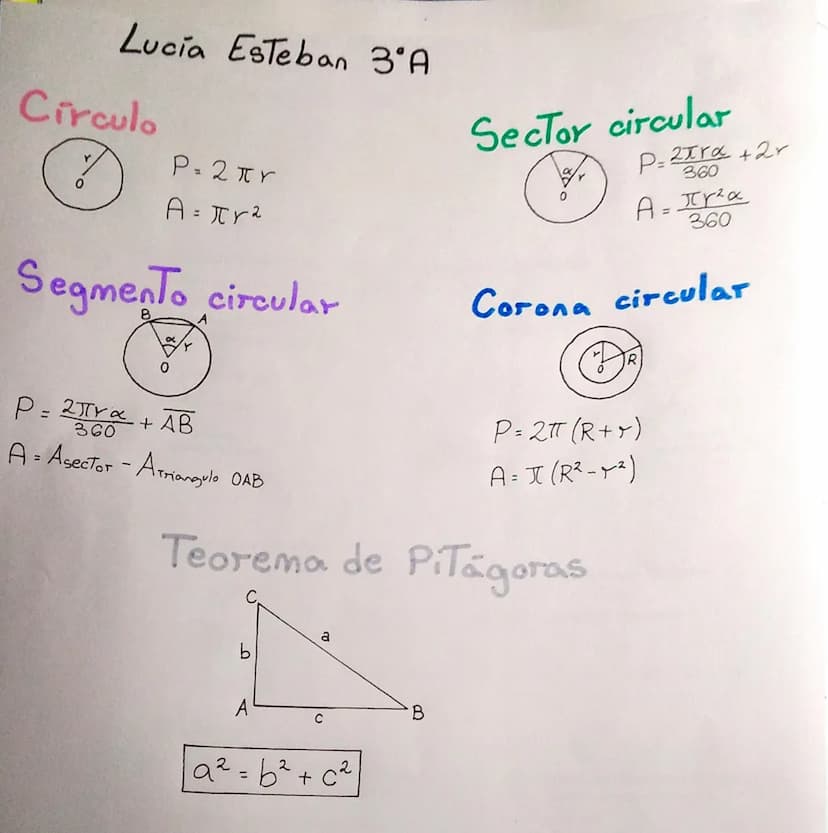 Lucía Esteban 3°A
Círculo
r
O
P = 2πr
A = πr²
Sector circular
α
r
O
P = 2πrα/360 + 2r
A = πr²α/360
Segmento circular
B
A
α
r
O
P = 2πrα/360 + A̅B̅
A = Asector - Atriangulo OAB
Corona circular
r
R
O
P = 2π (R + r)
A = π (R² - r²)
Teorema de Pitágoras
C
a
b
A
c
B
a² = b² + c²